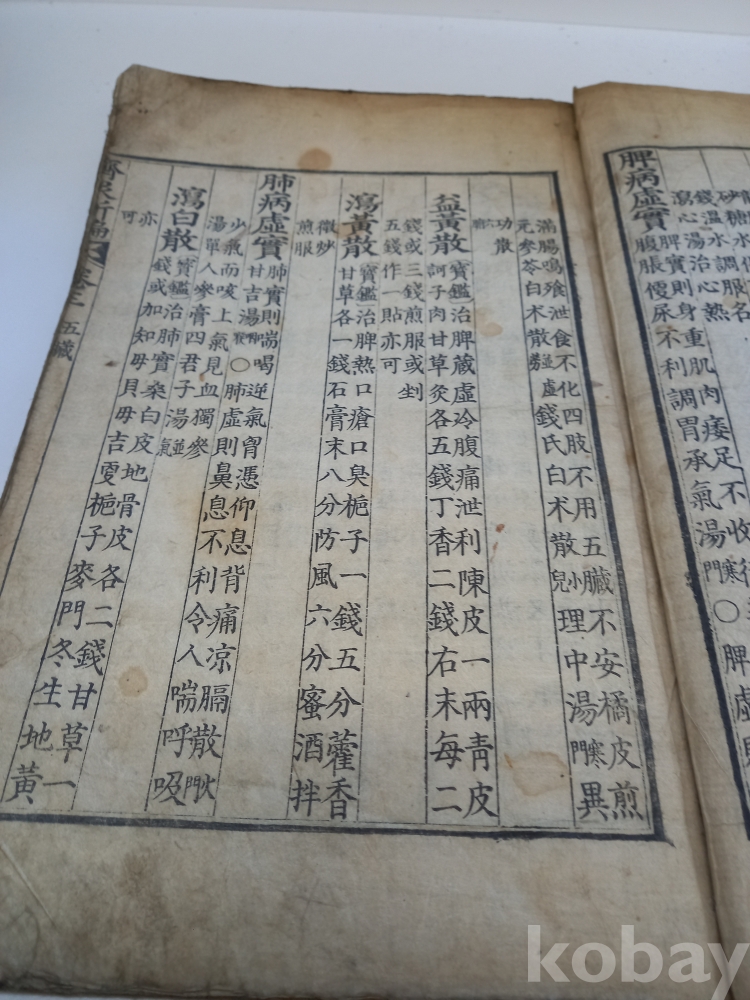 砂糖水調服
錢溫水
瀉心湯治心熱
脾病虛實
脾實則身重肌肉痿足不收行
腹脹便尿不利調胃承氣湯寒門〇脾虛則
滿腸鳴飱泄食不化四肢不用五臟不安橘皮煎
元參苓白朮散並虛勞錢氏白朮散小兒理中湯寒門異
功散
益黃散
寶鑑治脾藏虛冷腹痛泄利陳皮一兩靑皮
訶子肉甘草炙各五錢丁香二錢右末每二
錢或三錢煎服或剉
五錢作一貼亦可
瀉黃散
寶鑑治脾熱口瘡口臭梔子一錢五分藿香
甘草各一錢石膏末八分防風六分蜜酒拌
微炒
煎服
肺病虛實
肺實則喘喝逆氣胷憑仰息背痛凉膈散火門
甘吉湯〇肺虛則鼻息不利令人喘呼吸
少氣而咳上氣見血獨參
湯單人參膏四君子湯並氣
瀉白散
寶鑑治肺實桑白皮地骨皮各二錢甘草一
錢或加知母貝母吉更梔子麥門冬生地黃
亦
可
濟衆新編 卷三 五臟
kobay